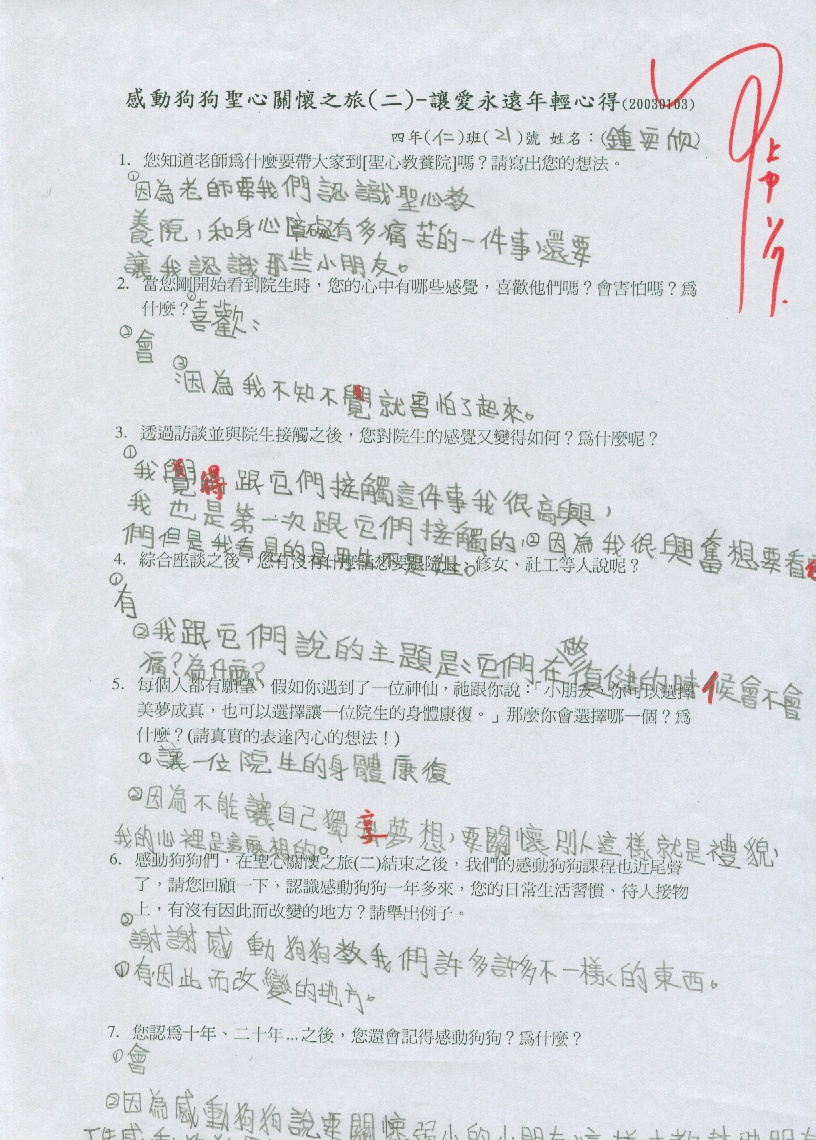 感動狗狗聖心關懷之旅(二)-讓愛永遠年輕心得(20030103)
四年(仁)班(21)號 姓名：(鍾雯欣)
1. 您知道老師為什麼要帶大家到[聖心教養院]嗎？請寫出您的想法。
①因為老師要我們認識聖心教
養院，和身心障礙有多痛苦的一件事，還要
讓我認識那些小朋友。
2. 當您剛開始看到院生時，您的心中有哪些感覺，喜歡他們嗎？會害怕嗎？為
什麼？
喜歡：
②會
因為我不知不覺就害怕了起來。
3. 透過訪談並與院生接觸之後，您對院生的感覺又變得如何？為什麼呢？
①
我覺得跟它們接觸這件事我很高興，
我也是第一次跟它們接觸的，②因為我很興奮想要看
們但是我看是的是男生不是女生。
4. 綜合座談之後，您有沒有什麼話想要跟院長、修女、社工等人說呢？
①有
②我跟它們說的主題是：它們在做復健的時候會不會
痛？為什麼？
5. 每個人都有願望，假如你遇到了一位神仙，祂跟你說：「小朋友，你可以選擇
美夢成真，也可以選擇讓一位院生的身體康復。」那麼你會選擇哪一個？為
什麼？(請真實的表達內心的想法！)
①讓一位院生的身體康復
②因為不能讓自己獨享夢想，要關懷別人這樣就是禮貌，
我的心裡是這麼想的。
6. 感動狗狗們，在聖心關懷之旅(二)結束之後，我們的感動狗狗課程也近尾聲
了，請您回顧一下，認識感動狗狗一年多來，您的日常生活習慣、待人接物
上，有沒有因此而改變的地方？請舉出例子。
②
謝謝感動狗狗教我們許多許多不一樣的東西。
①有因此而改變的地方。
7. 您認為十年、二十年…之後，您還會記得感動狗狗？為什麼？
①會
②因為感動狗狗說要關懷弱小的小朋友